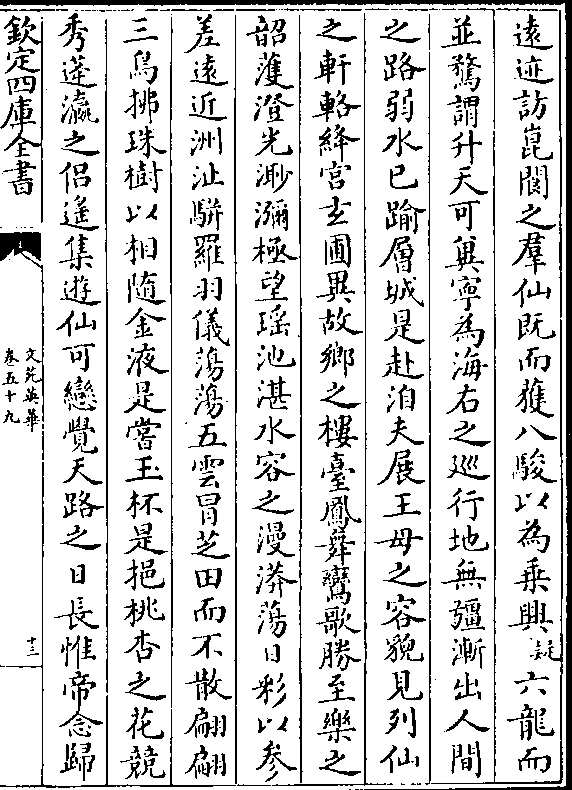 遠迹訪崑閬之羣仙既而獲八駿以為乗興疑六龍而
並騖謂升天可冀寧為海右之廵行地無疆漸出人間
之路弱水已踰層城是赴洎夫展王母之容貌見列仙
之軒輅絳宮玄圃異故鄉之樓臺鳳舞鸞歌勝至樂之
韶濩澄光渺瀰極望瑶池湛水容之漫漭蕩日彩以參
差遠近洲沚駢羅羽儀蕩蕩五雲冒芝田而不散翩翩
三鳥拂珠樹以相随金液是嘗玉杯是挹桃杏之花競
秀蓬瀛之侣遙集遊仙可戀覺天路之日長惟帝念歸
欽定四庫全書
文苑英華
卷五十九
十三